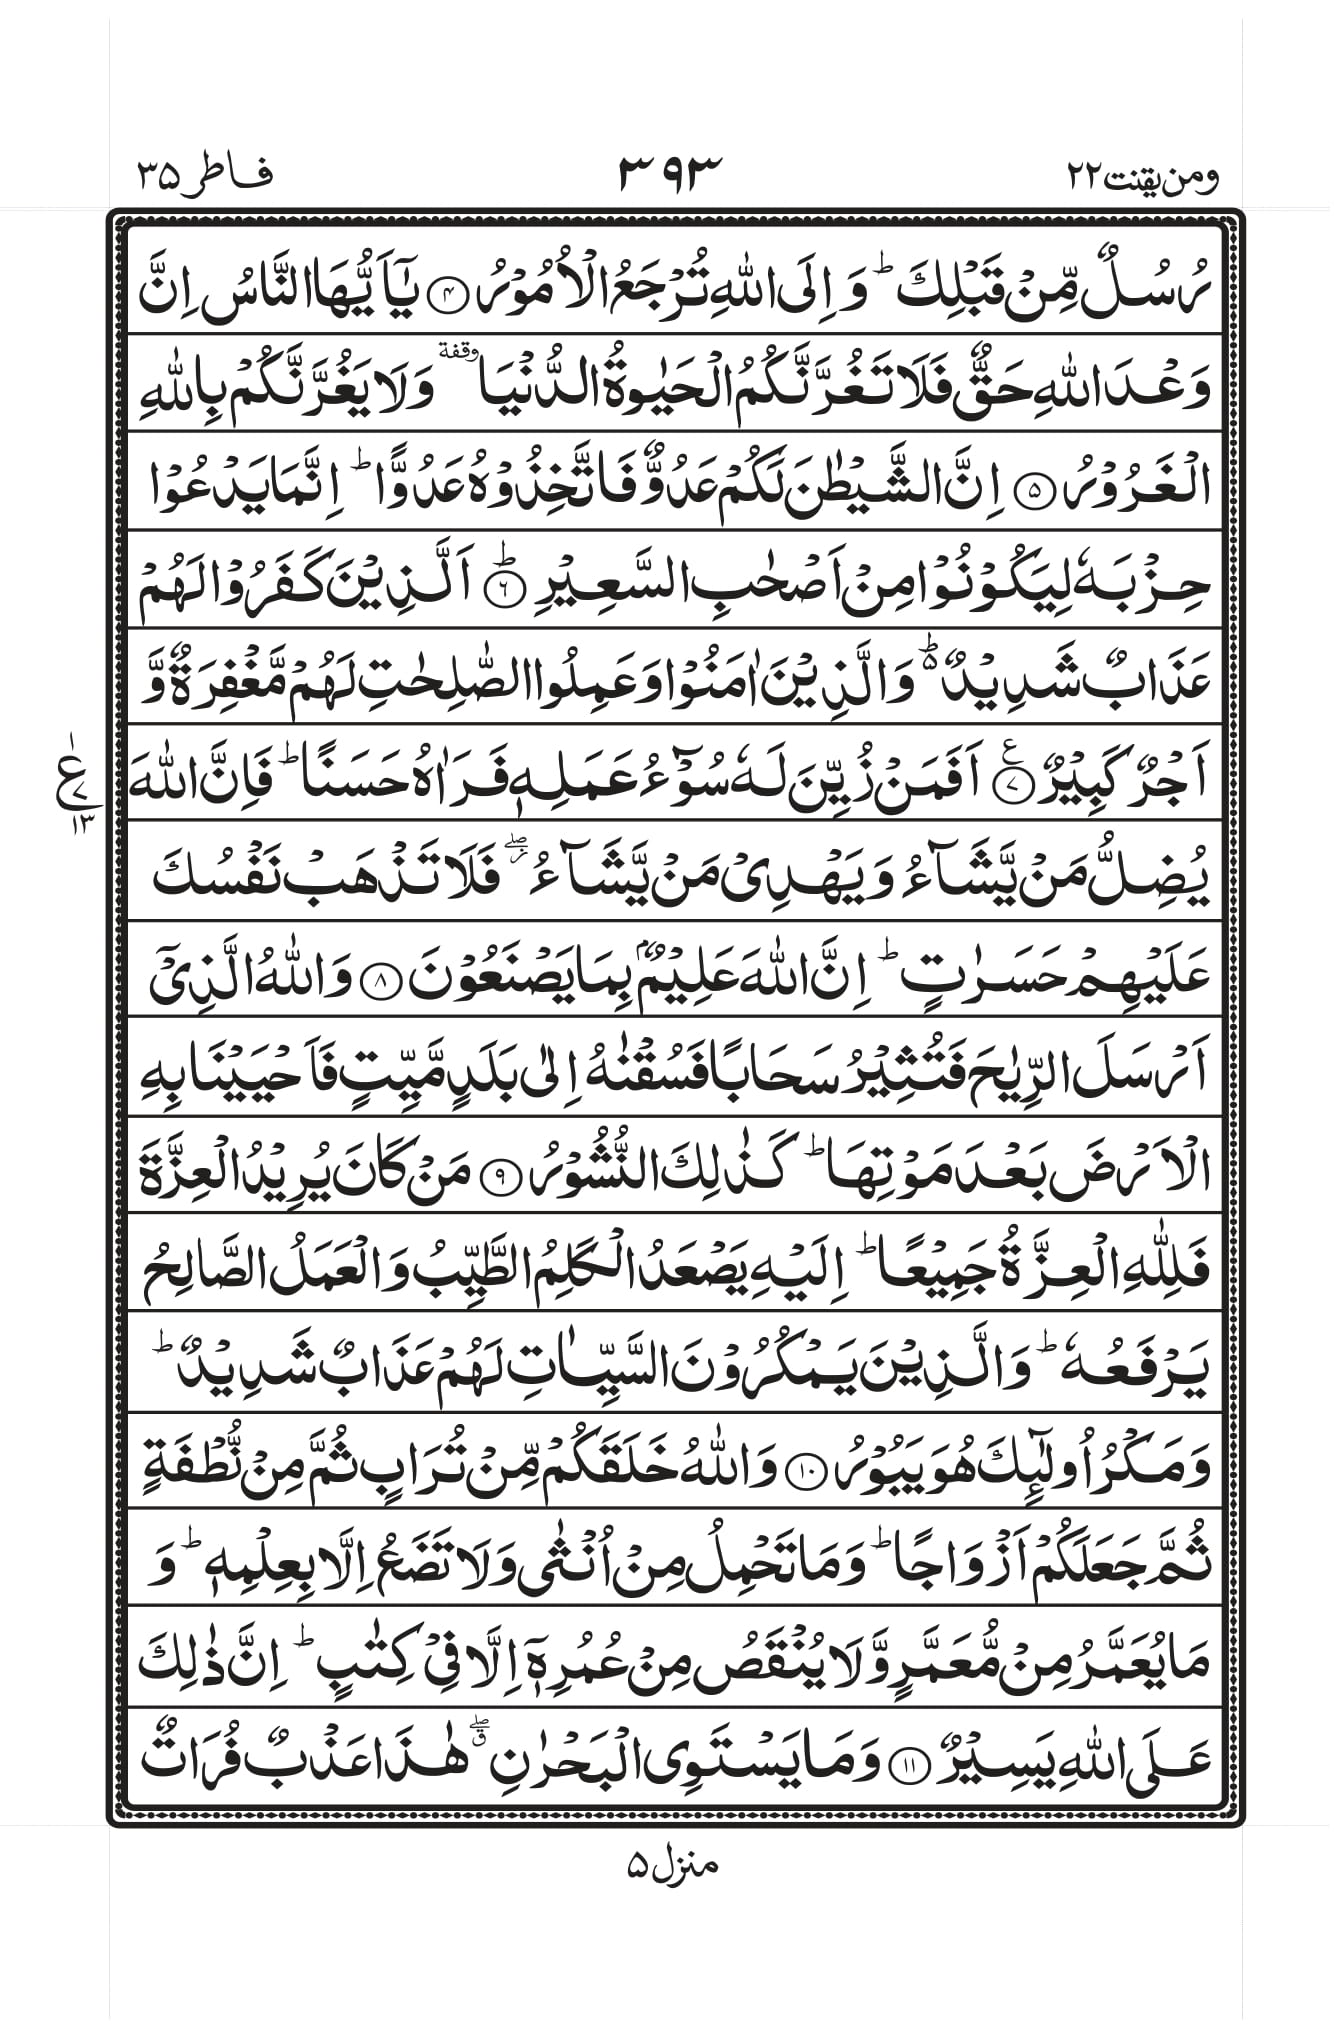 ومن یقنت ۲۲ ۳۹۳ فاطر ۳۵
رُسُلٌ مِّنْ قَبْلِكَ ؕ وَ اِلَى اللّٰهِ تُرْجَعُ الْاُمُوْرُ ۝۴ یٰۤاَیُّهَا النَّاسُ اِنَّ
وَعْدَ اللّٰهِ حَقٌّ فَلَا تَغُرَّنَّكُمُ الْحَیٰوةُ الدُّنْیَا وقفة وَلَا یَغُرَّنَّكُمْ بِاللّٰهِ
الْغَرُوْرُ ۝۵ اِنَّ الشَّیْطٰنَ لَكُمْ عَدُوٌّ فَاتَّخِذُوْهُ عَدُوًّا ؕ اِنَّمَا یَدْعُوْا
حِزْبَهٗ لِیَكُوْنُوْا مِنْ اَصْحٰبِ السَّعِیْرِ ۝۶ؕ اَلَّذِیْنَ كَفَرُوْا لَهُمْ
عَذَابٌ شَدِیْدٌ ۵ؕ وَالَّذِیْنَ اٰمَنُوْا وَعَمِلُوا الصّٰلِحٰتِ لَهُمْ مَّغْفِرَةٌ وَّ
اَجْرٌ كَبِیْرٌ ۝۷ع اَفَمَنْ زُیِّنَ لَهٗ سُوْٓءُ عَمَلِهٖ فَرَاٰهُ حَسَنًا ؕ فَاِنَّ اللّٰهَ
۱ ع ۷ ۱۳
یُضِلُّ مَنْ یَّشَآءُ وَیَهْدِیْ مَنْ یَّشَآءُ ۖؗ فَلَا تَذْهَبْ نَفْسُكَ
عَلَیْهِمْ حَسَرٰتٍ ؕ اِنَّ اللّٰهَ عَلِیْمٌۢ بِمَا یَصْنَعُوْنَ ۝۸ وَاللّٰهُ الَّذِیْۤ
اَرْسَلَ الرِّیٰحَ فَتُثِیْرُ سَحَابًا فَسُقْنٰهُ اِلٰی بَلَدٍ مَّیِّتٍ فَاَحْیَیْنَا بِهِ
الْاَرْضَ بَعْدَ مَوْتِهَا ؕ كَذٰلِكَ النُّشُوْرُ ۝۹ مَنْ كَانَ یُرِیْدُ الْعِزَّةَ
فَلِلّٰهِ الْعِزَّةُ جَمِیْعًا ؕ اِلَیْهِ یَصْعَدُ الْكَلِمُ الطَّیِّبُ وَالْعَمَلُ الصَّالِحُ
یَرْفَعُهٗ ؕ وَالَّذِیْنَ یَمْكُرُوْنَ السَّیِّاٰتِ لَهُمْ عَذَابٌ شَدِیْدٌ ؕ
وَمَكْرُ اُولٰٓئِكَ هُوَ یَبُوْرُ ۝۱۰ وَاللّٰهُ خَلَقَكُمْ مِّنْ تُرَابٍ ثُمَّ مِنْ نُّطْفَةٍ
ثُمَّ جَعَلَكُمْ اَزْوَاجًا ؕ وَمَا تَحْمِلُ مِنْ اُنْثٰی وَلَا تَضَعُ اِلَّا بِعِلْمِهٖ ؕ وَ
مَا یُعَمَّرُ مِنْ مُّعَمَّرٍ وَّلَا یُنْقَصُ مِنْ عُمُرِهٖۤ اِلَّا فِیْ كِتٰبٍ ؕ اِنَّ ذٰلِكَ
عَلَی اللّٰهِ یَسِیْرٌ ۝۱۱ وَمَا یَسْتَوِی الْبَحْرٰنِ ۖق هٰذَا عَذْبٌ فُرَاتٌ
منزل ۵